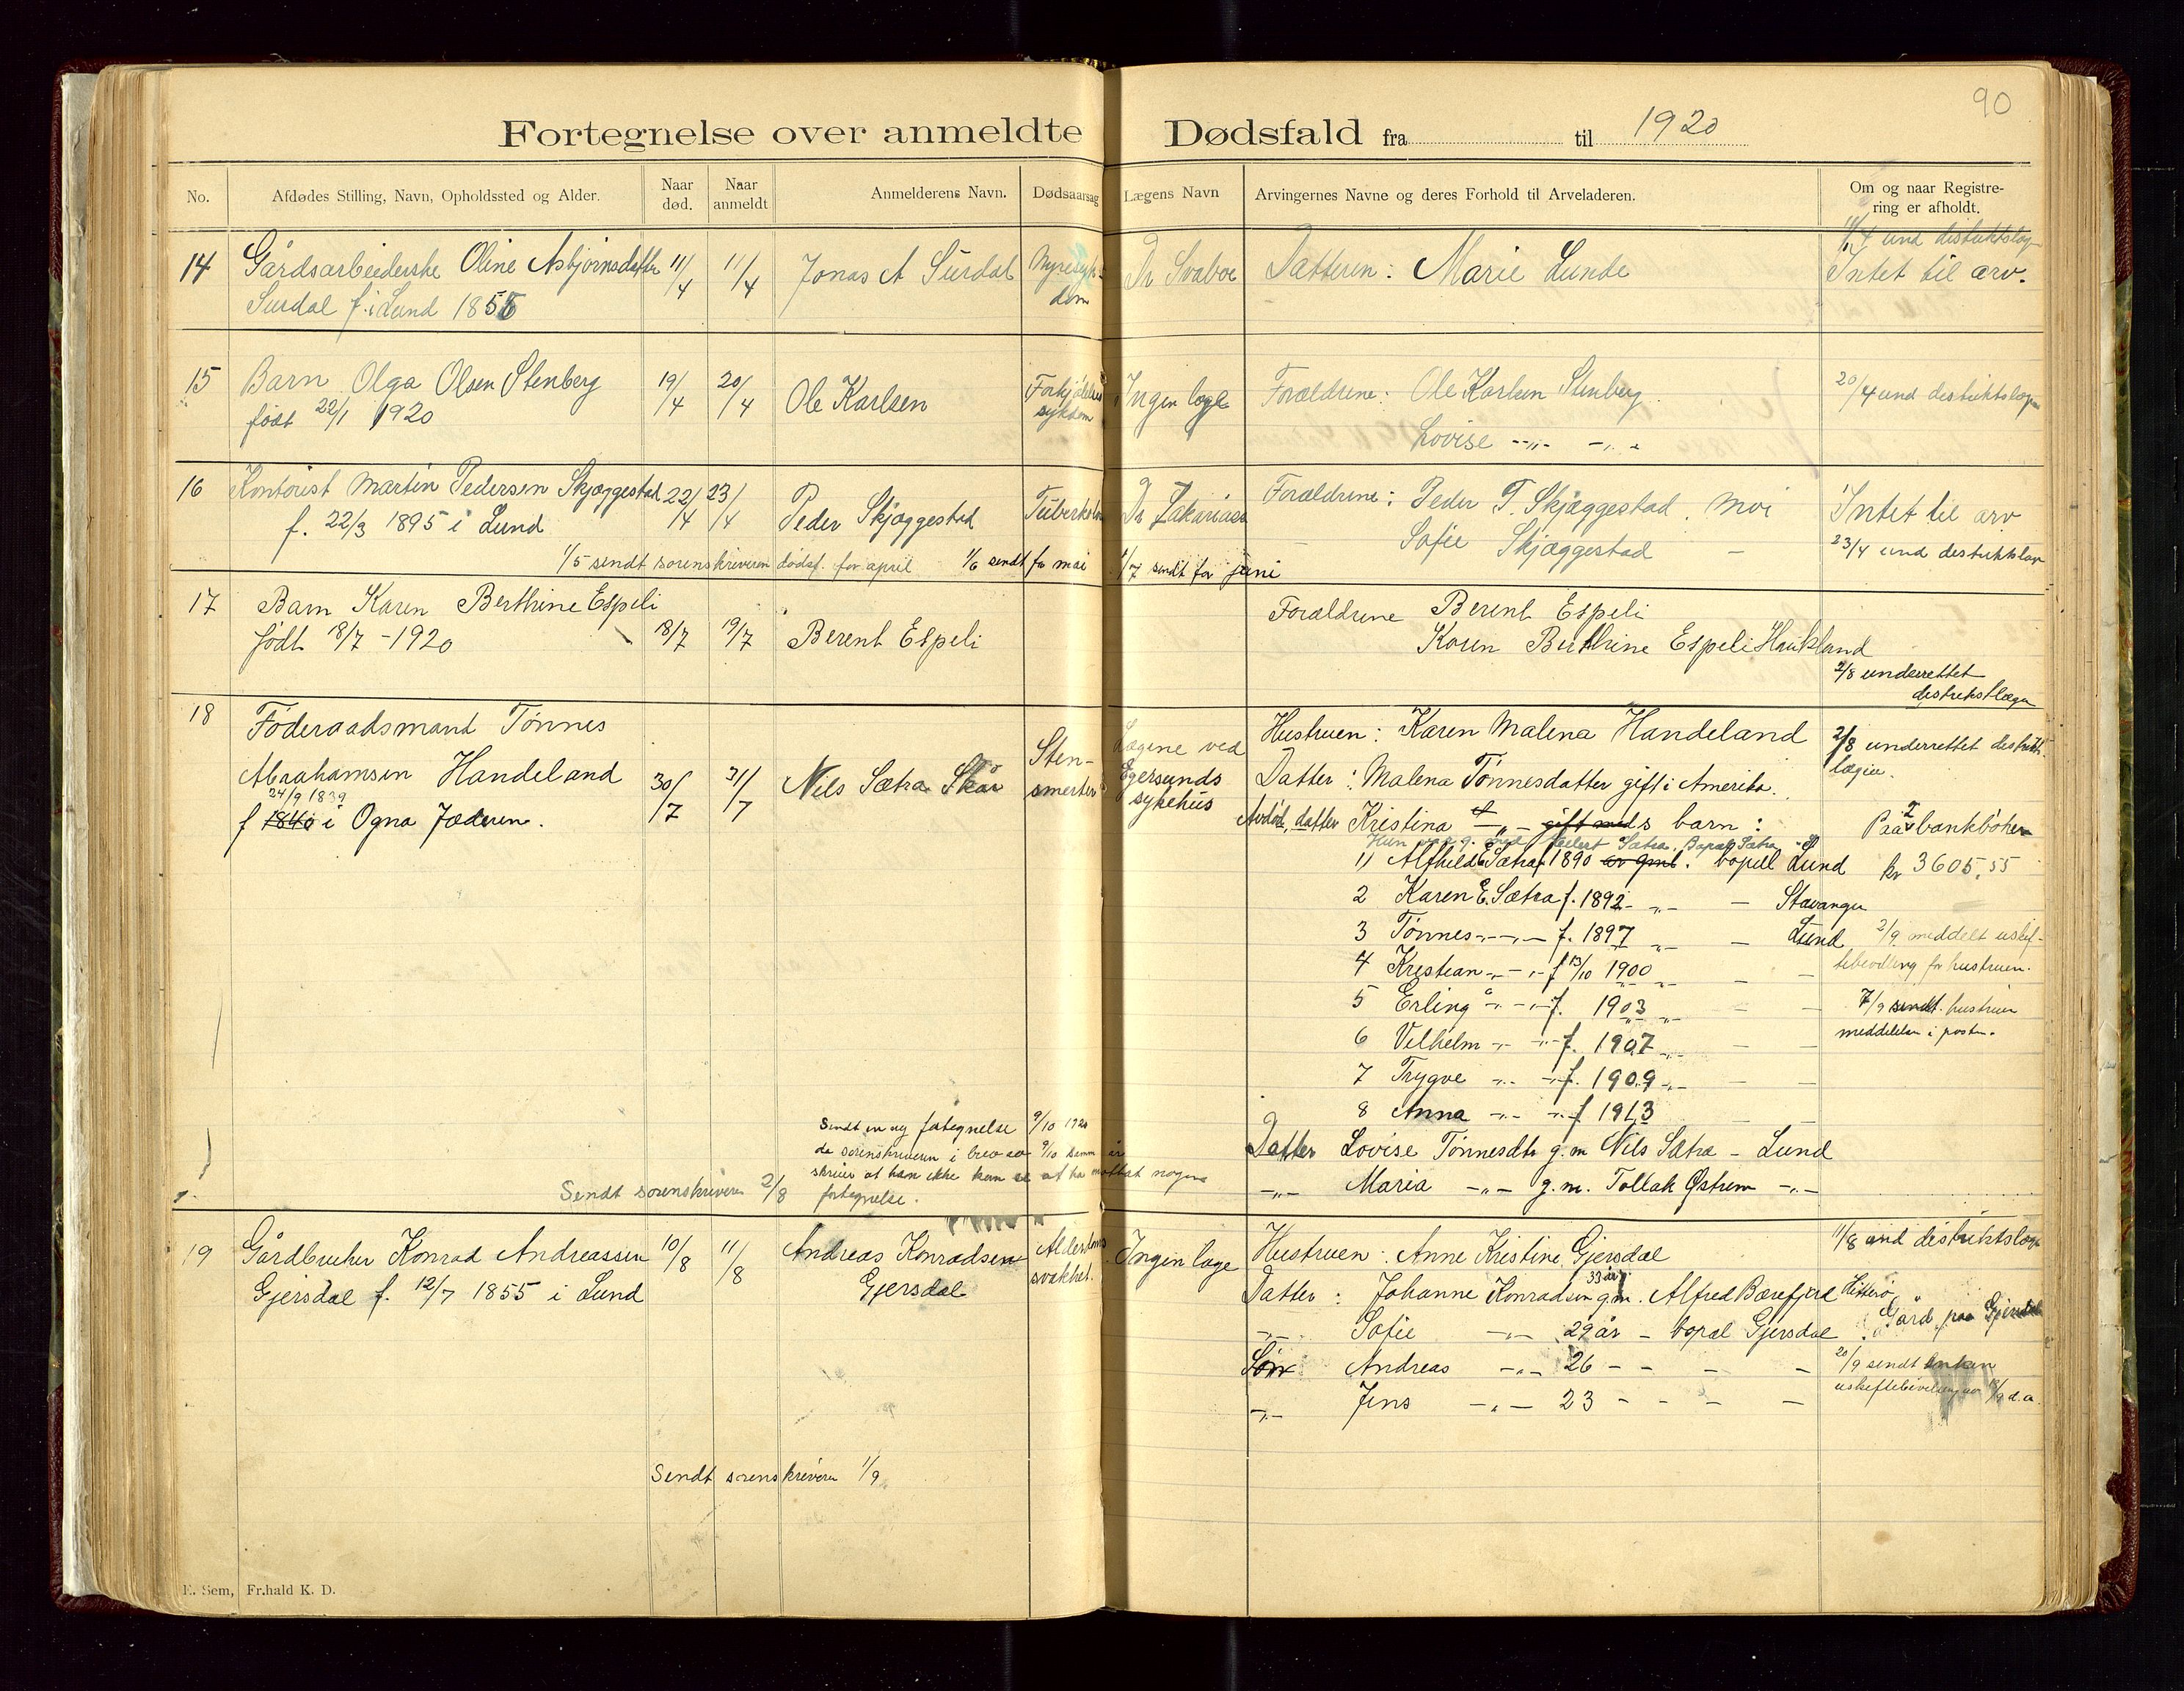 90
Fortegnelse over anmeldte Dødsfald fra til 1920
No. Afdødes Stilling, Navn, Opholdssted og Alder. Naar død. Naar anmeldt Anmelderens Navn. Dødsaarsag Lægens Navn Arvingernes Navne og deres Forhold til Arveladeren. Om og naar Registrering er afholdt.
14 Gårdsarbeiderske Oline Asbjørnsdatter 11/4 11/4 Jonas A Surdal Nyresyk- Dr Svaboe Datteren: Marie Lunde 11/4 und distriktslæg
Surdal f. i Lund dom Intet til arv.
15 Barn Olga Olsen Stenberg 19/4 20/4 Ole Karlsen Forkjølelses Ingen læge Forældrene: Ole Karlsen Stenberg 20/4 und distriktslægen
født 22/1 1920 sykdom Lovise -„- -„-
16 Kontorist Martin Pedersen Skjæggestad 22/4 23/4 Peder Skjæggestad Dr Zakarias Forældrene: Peder T. Skjæggestad. Moi Intet til arv
f. 22/3 1895 i Lund Sofie Skjæggestad - 23/4 und distriktslæg
1/5 sendt sorenskriveren dødsf. for april 1/6 sendt for mai 1/7 sendt for juni
17 Barn Karen Berthine Espeli 18/7 19/7 Berent Espeli Forældrene Berent Espeli
født 18/7 - 1920 Karen Berthine Espeli Haukland
2/8 underrettet
distriktslægen
18 Føderaadsmand Tønnes Hustruen: Karen Malena Handeland 2/8 underrettet distrikts-
Abrahamsen Handeland 30/7 31/7 Nils Sætra Skår Sten- Lægene ved Datter: Malena Tønnesdatter gift i Amerika. lægen.
24/9 1839 smerter Egersunds
f 1840 i Ogna Jæderen. sykehus Avdød datter Kristina -„- gift meds barn: Paa 2 bankbøker
1) Alfhild E Sætra f 1890 bopæl Lund kr 3605,55
2 Karen E. Sætra f. 1892 -„- - Stavanger
3 Tønnes -„- -„- f. 1897 -„- - Lund 2/9 meddelt uskif-
4 Kristian -„- -„- f 13/10 1900 -„- - - tebevilling for hustruen.
5 Erling -„- -„- f. 1903 -„- - - 7/9 sendt hustruen
6 Vilhelm -„- -„- f. 1907 -„- - - meddelelse i posten.
7 Trygve -„- -„- f. 1909 -„- - -
8 Anna -„- -„- f 1913 - -
Sendt en ny fortegnelse 9/10 1920
da sorenskriveren i brev av 9/10 samme år
skriver at han ikke kan se at ha mottat nogen
fortegnelse.
Datter Lovise Tønnesdtr g.m Nils Sætra - Lund
-„- Maria -„- g.m. Tollak Østrem -„-
Sendt sorenskriveren 2/8
19 Gårdbruker Konrad Andreassen 10/8 11/8 Andreas Konradsen Alderdoms Ingen læge Hustruen: Anne Kristine Gjersdal 11/8 und distriktslæg
Gjersdal f. 12/7 1855 i Lund Gjersdal svakhet. Datter: Johanne Konradsen 33 år g.m. Alfred Bærefjord Hitterø
-„- Sofie -„- 29 år - bopæl Gjersdal Gård paa Gjersdal
Søn Andreas -„- 26 - - - - 20/9 sendt enken
-„- Jens -„- 23 - - - - uskiftebevilling av 18/9 d.a.
Sendt sorenskriveren 1/9
E. Sem, Fr.hald K. D.